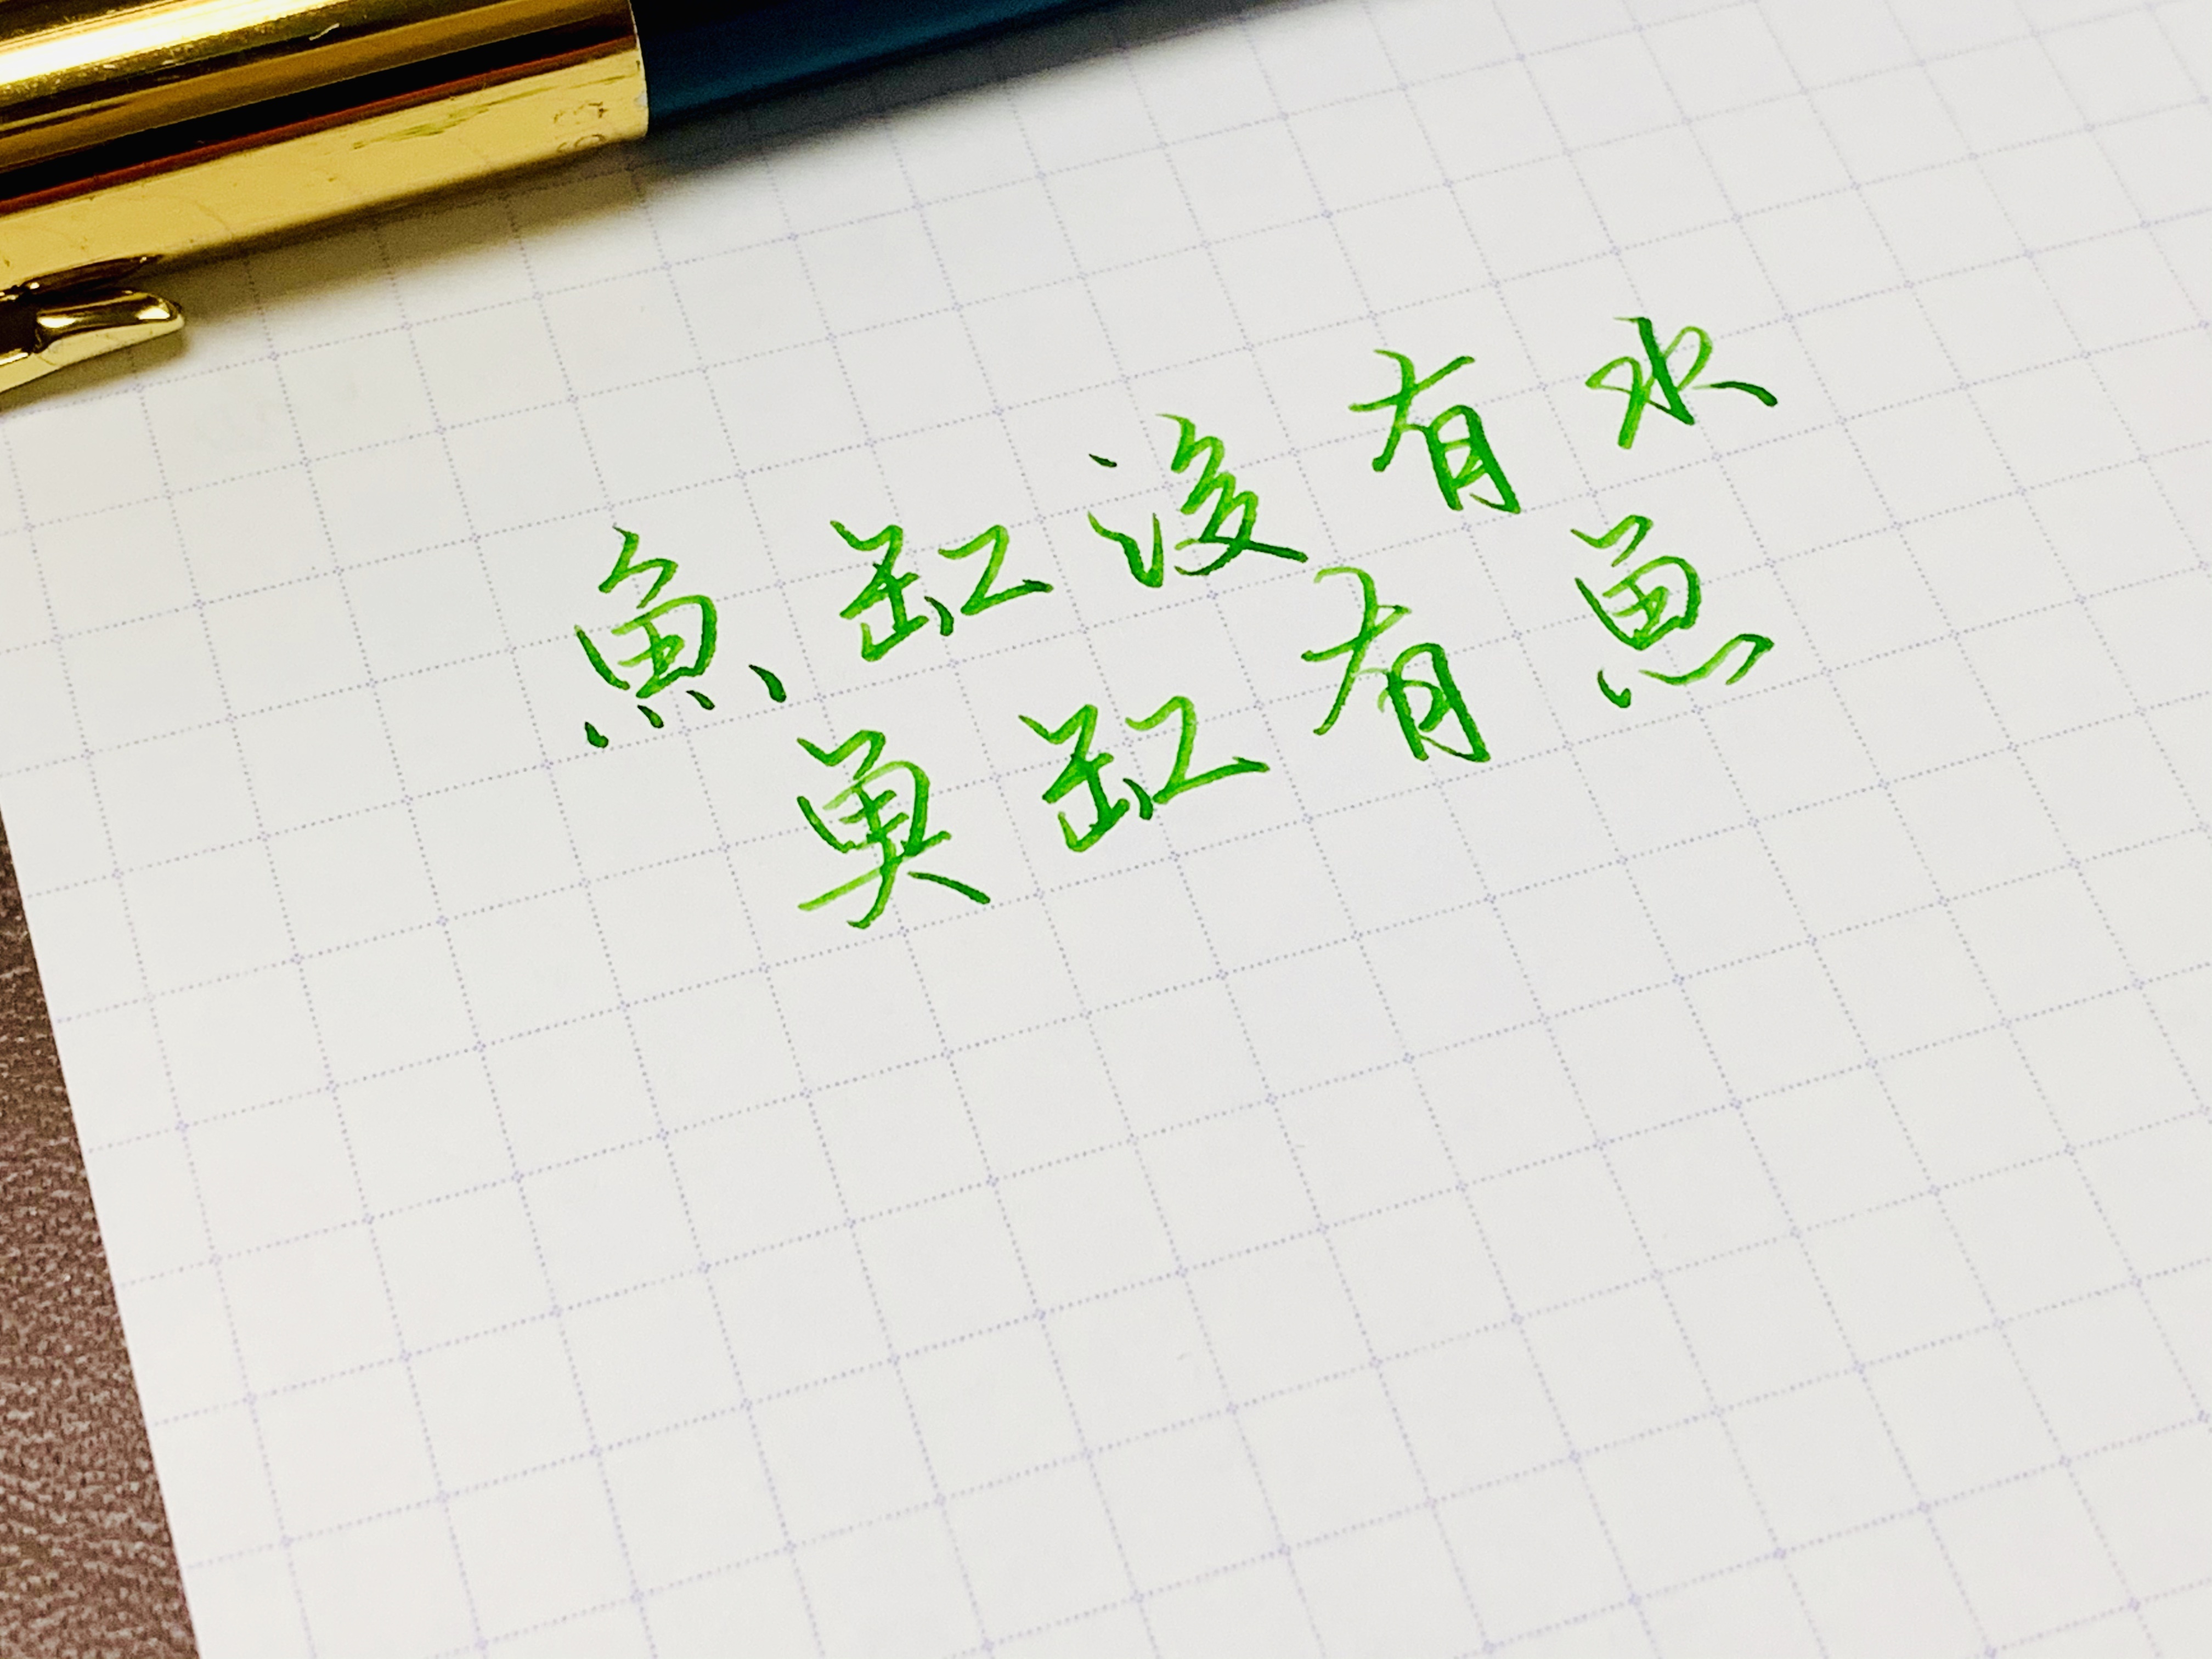 魚缸沒有水
魚缸有魚